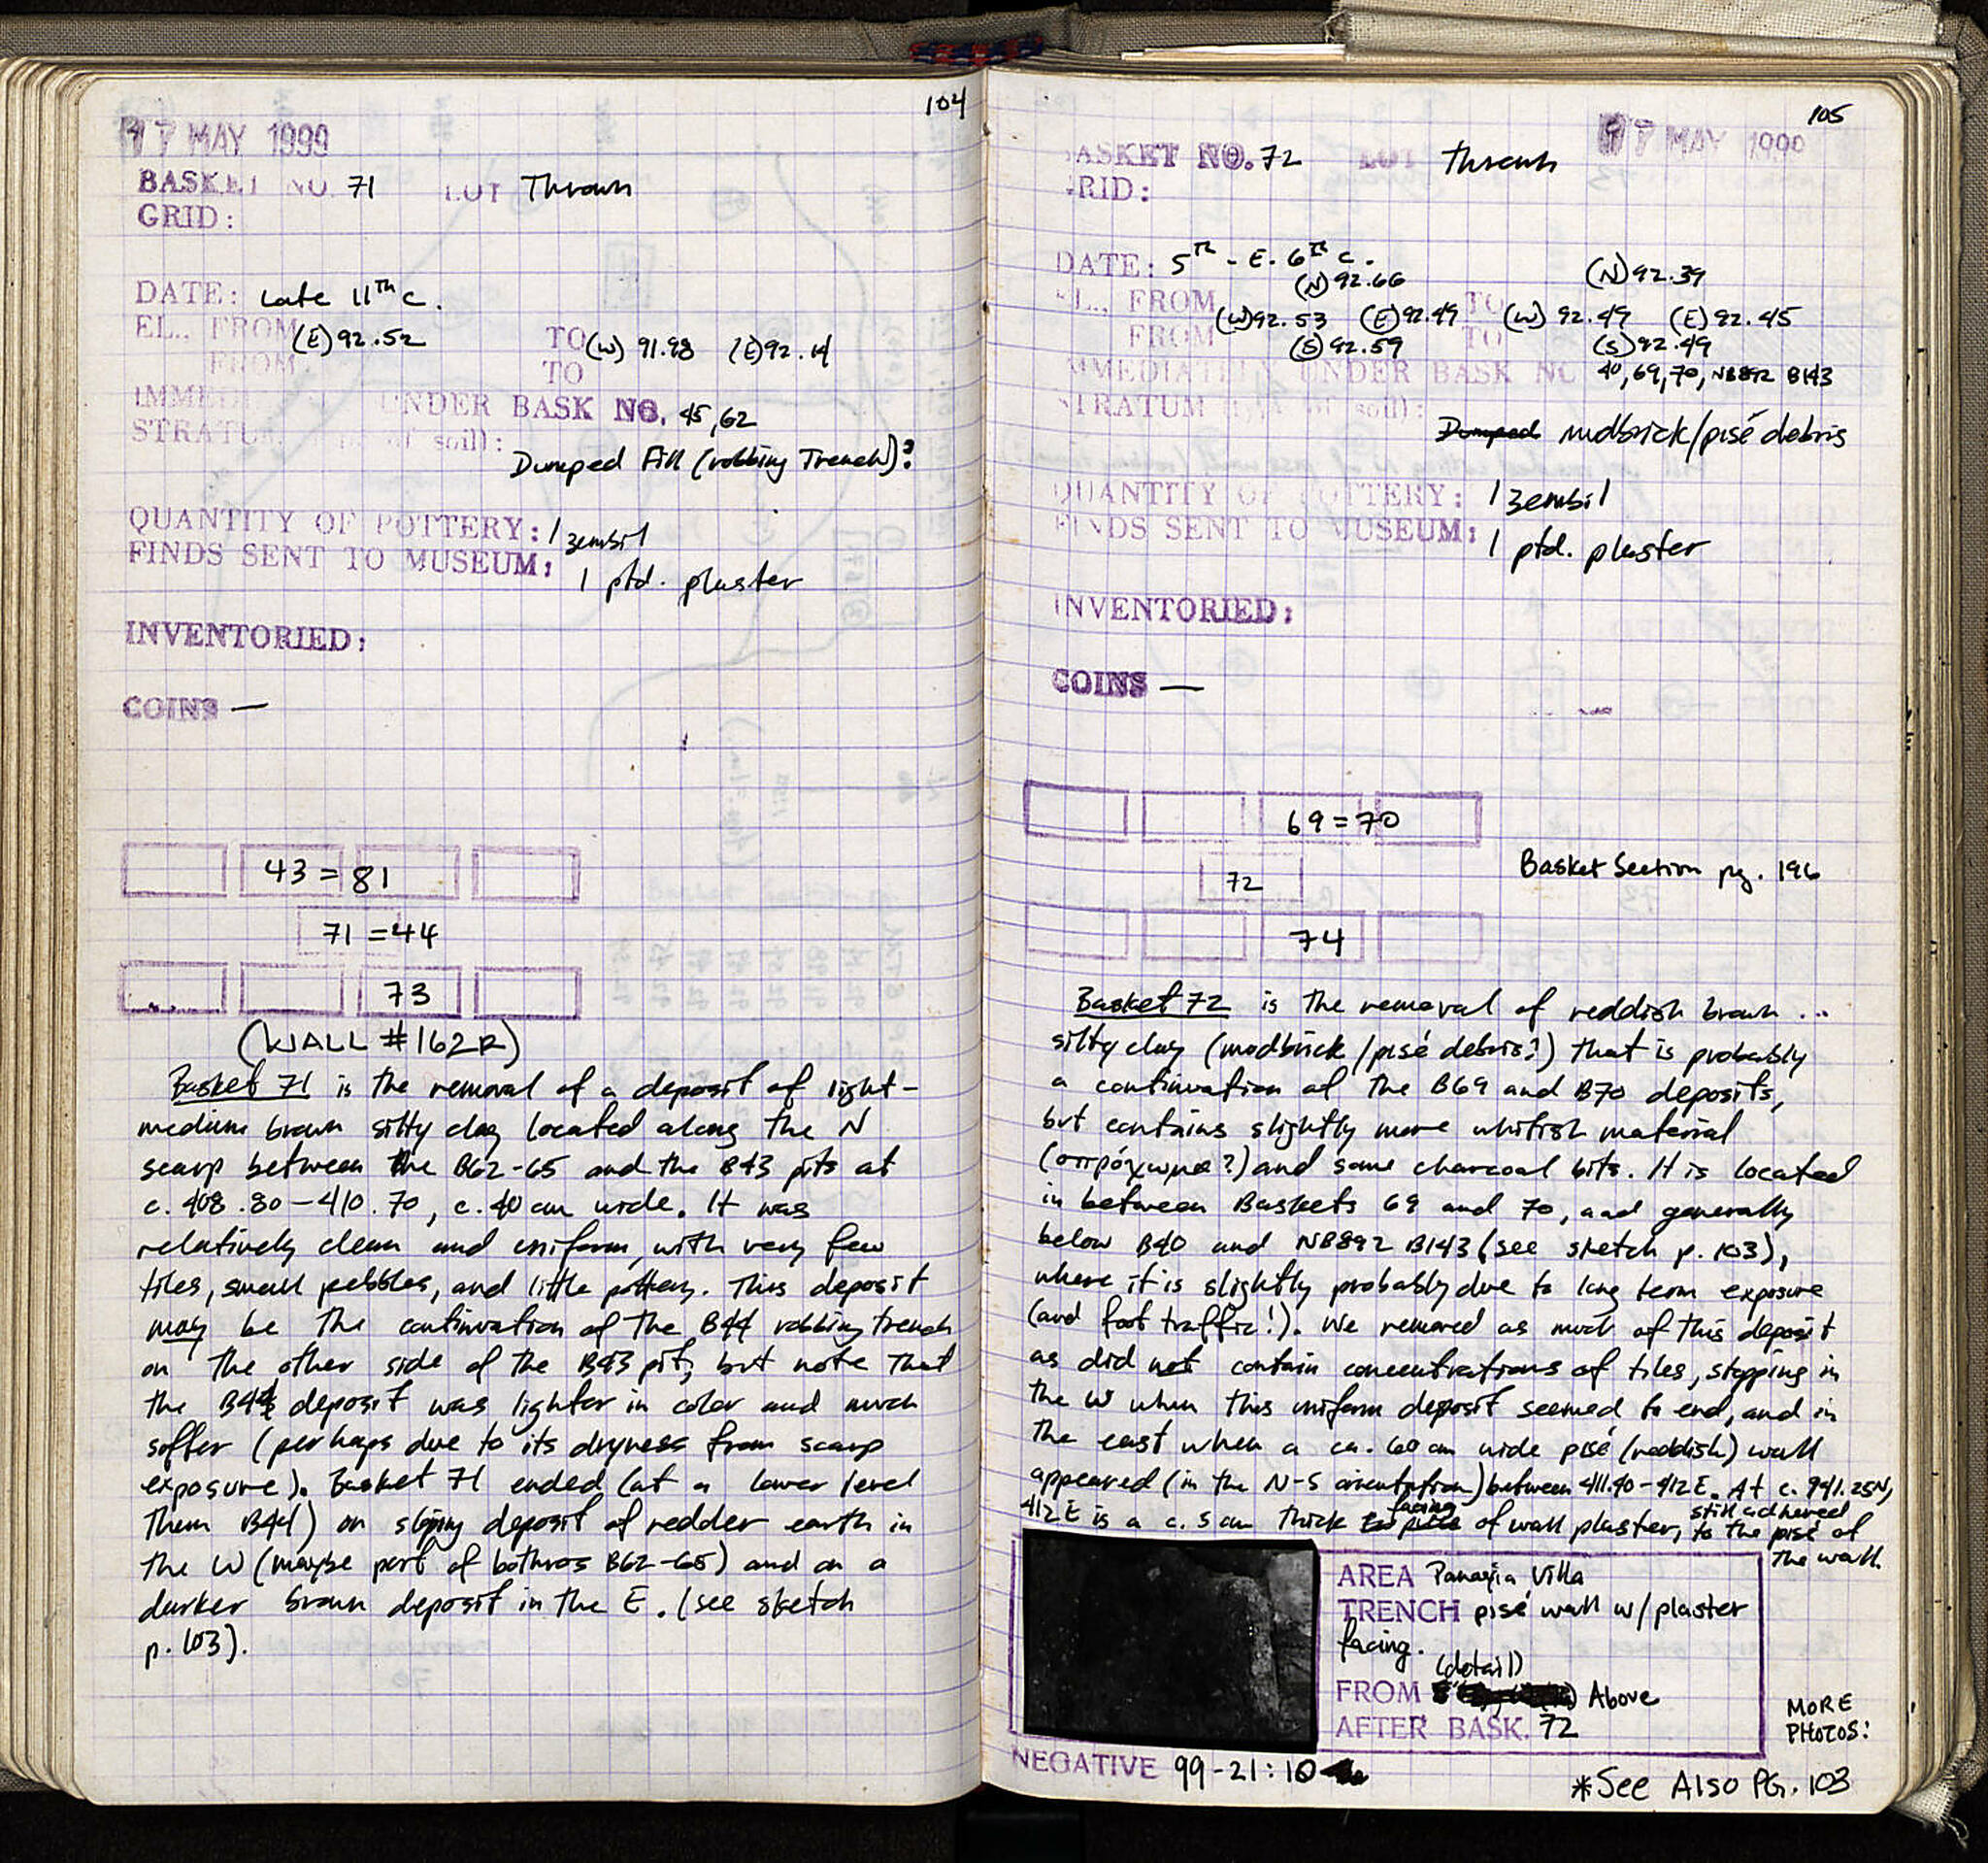 104
17 MAY 1999
BASKET NO. 71 LOT Thrown
GRID:
DATE: Late 11th c.
EL., FROM (E) 92.52 TO (W) 91.98 (E) 92.14
FROM TO
IMMED UNDER BASK NO. 45, 62
STRATU of soil):
Dumped Fill (robbing Trench)?
QUANTITY OF POTTERY: 1 zembil
FINDS SENT TO MUSEUM: 1 ptd. plaster
INVENTORIED:
COINS —
43 = 81
71 = 44
73
(WALL #162R)
Basket 71 is the removal of a deposit of light-
medium brown silty clay located along the N
scarp between the B62-65 and the B43 pits at
c. 408.80-410.70, c. 40 cm wide. It was
relatively clean and uniform, with very few
tiles, small pebbles, and little pottery. This deposit
may be the continuation of the B44 robbing trench
on the other side of the B43 pit, but note that
the B44 deposit was lighter in color and much
softer (perhaps due to its dryness from scarp
exposure). Basket 71 ended (at a lower level
then B44) on sloping deposit of redder earth in
the W (maybe part of bothros B62-65) and on a
darker brown deposit in the E. (see sketch
p. 103).
105
17 MAY 1999
BASKET NO. 72 LOT thrown
GRID:
DATE: 5th - E. 6th c.
(N) 92.66 (N) 92.39
EL., FROM (W) 92.53 (E) 92.49 TO (W) 92.49 (E) 92.45
FROM (S) 92.59 TO (S) 92.49
IMMEDIATELY UNDER BASK NO 40, 69, 70, NB892 B143
STRATUM (type of soil):
Dumped mudbrick/pisé debris
QUANTITY OF POTTERY: 1 zembil
FINDS SENT TO MUSEUM: 1 ptd. plaster
INVENTORIED:
COINS —
69 = 70
72
Basket Section pg. 196
74
Basket 72 is the removal of reddish brown ...
silty clay (mudbrick/pisé debris?) that is probably
a continuation of the B69 and B70 deposits,
but contains slightly more whitish material
(ασπρόχωμα?) and some charcoal bits. It is located
in between Baskets 69 and 70, and generally
below B40 and NB892 B143 (see sketch p. 103),
where it is slightly probably due to long term exposure
(and foot traffic!). We removed as much of this deposit
as did not contain concentrations of tiles, stopping in
the W when this uniform deposit seemed to end, and in
the east when a ca. 60 cm wide pisé (reddish) wall
appeared (in the N-S orientation) between 411.40-412 E. At c. 941.25N,
412 E is a c. 5 cm thick facing of wall plaster, still adhered to the pisé of
the wall.
AREA Panayia Villa
TRENCH pisé wall w/plaster
facing.
(detail)
FROM Above
AFTER BASK. 72
NEGATIVE 99-21:10
MORE
PHOTOS:
*See Also PG. 103